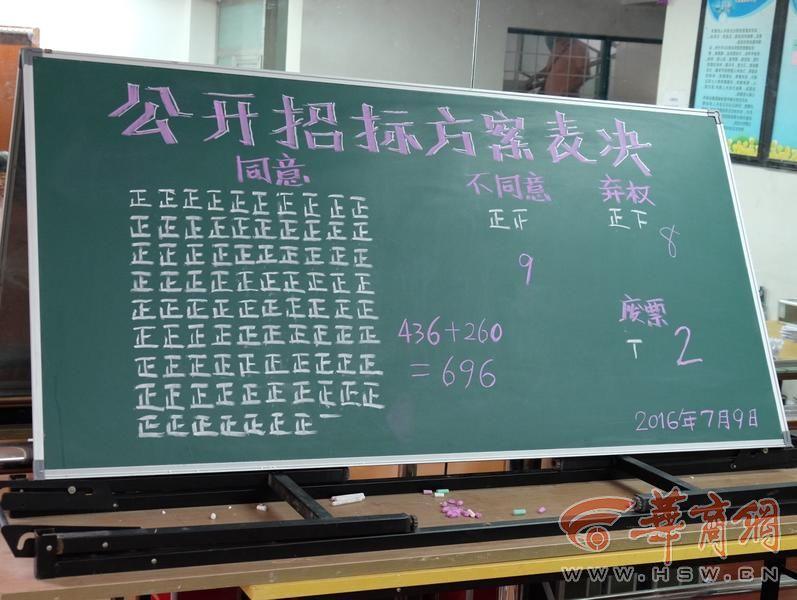 公开招标方案表决
同意 不同意 弃权
正正正正正正正正正正
正正正正正正正正正正
正正正正正正正正正正
正正正正正正正正正正
正正正正正正正正正正
正正正正正正正正正正
正正正正正正正正正正
正正正正正正正正正正
正正正正正正正一
正正
9
正下
8
436+260
=696
废票
丅 2
2016年7月9日
華商網
WWW.HSW.CN